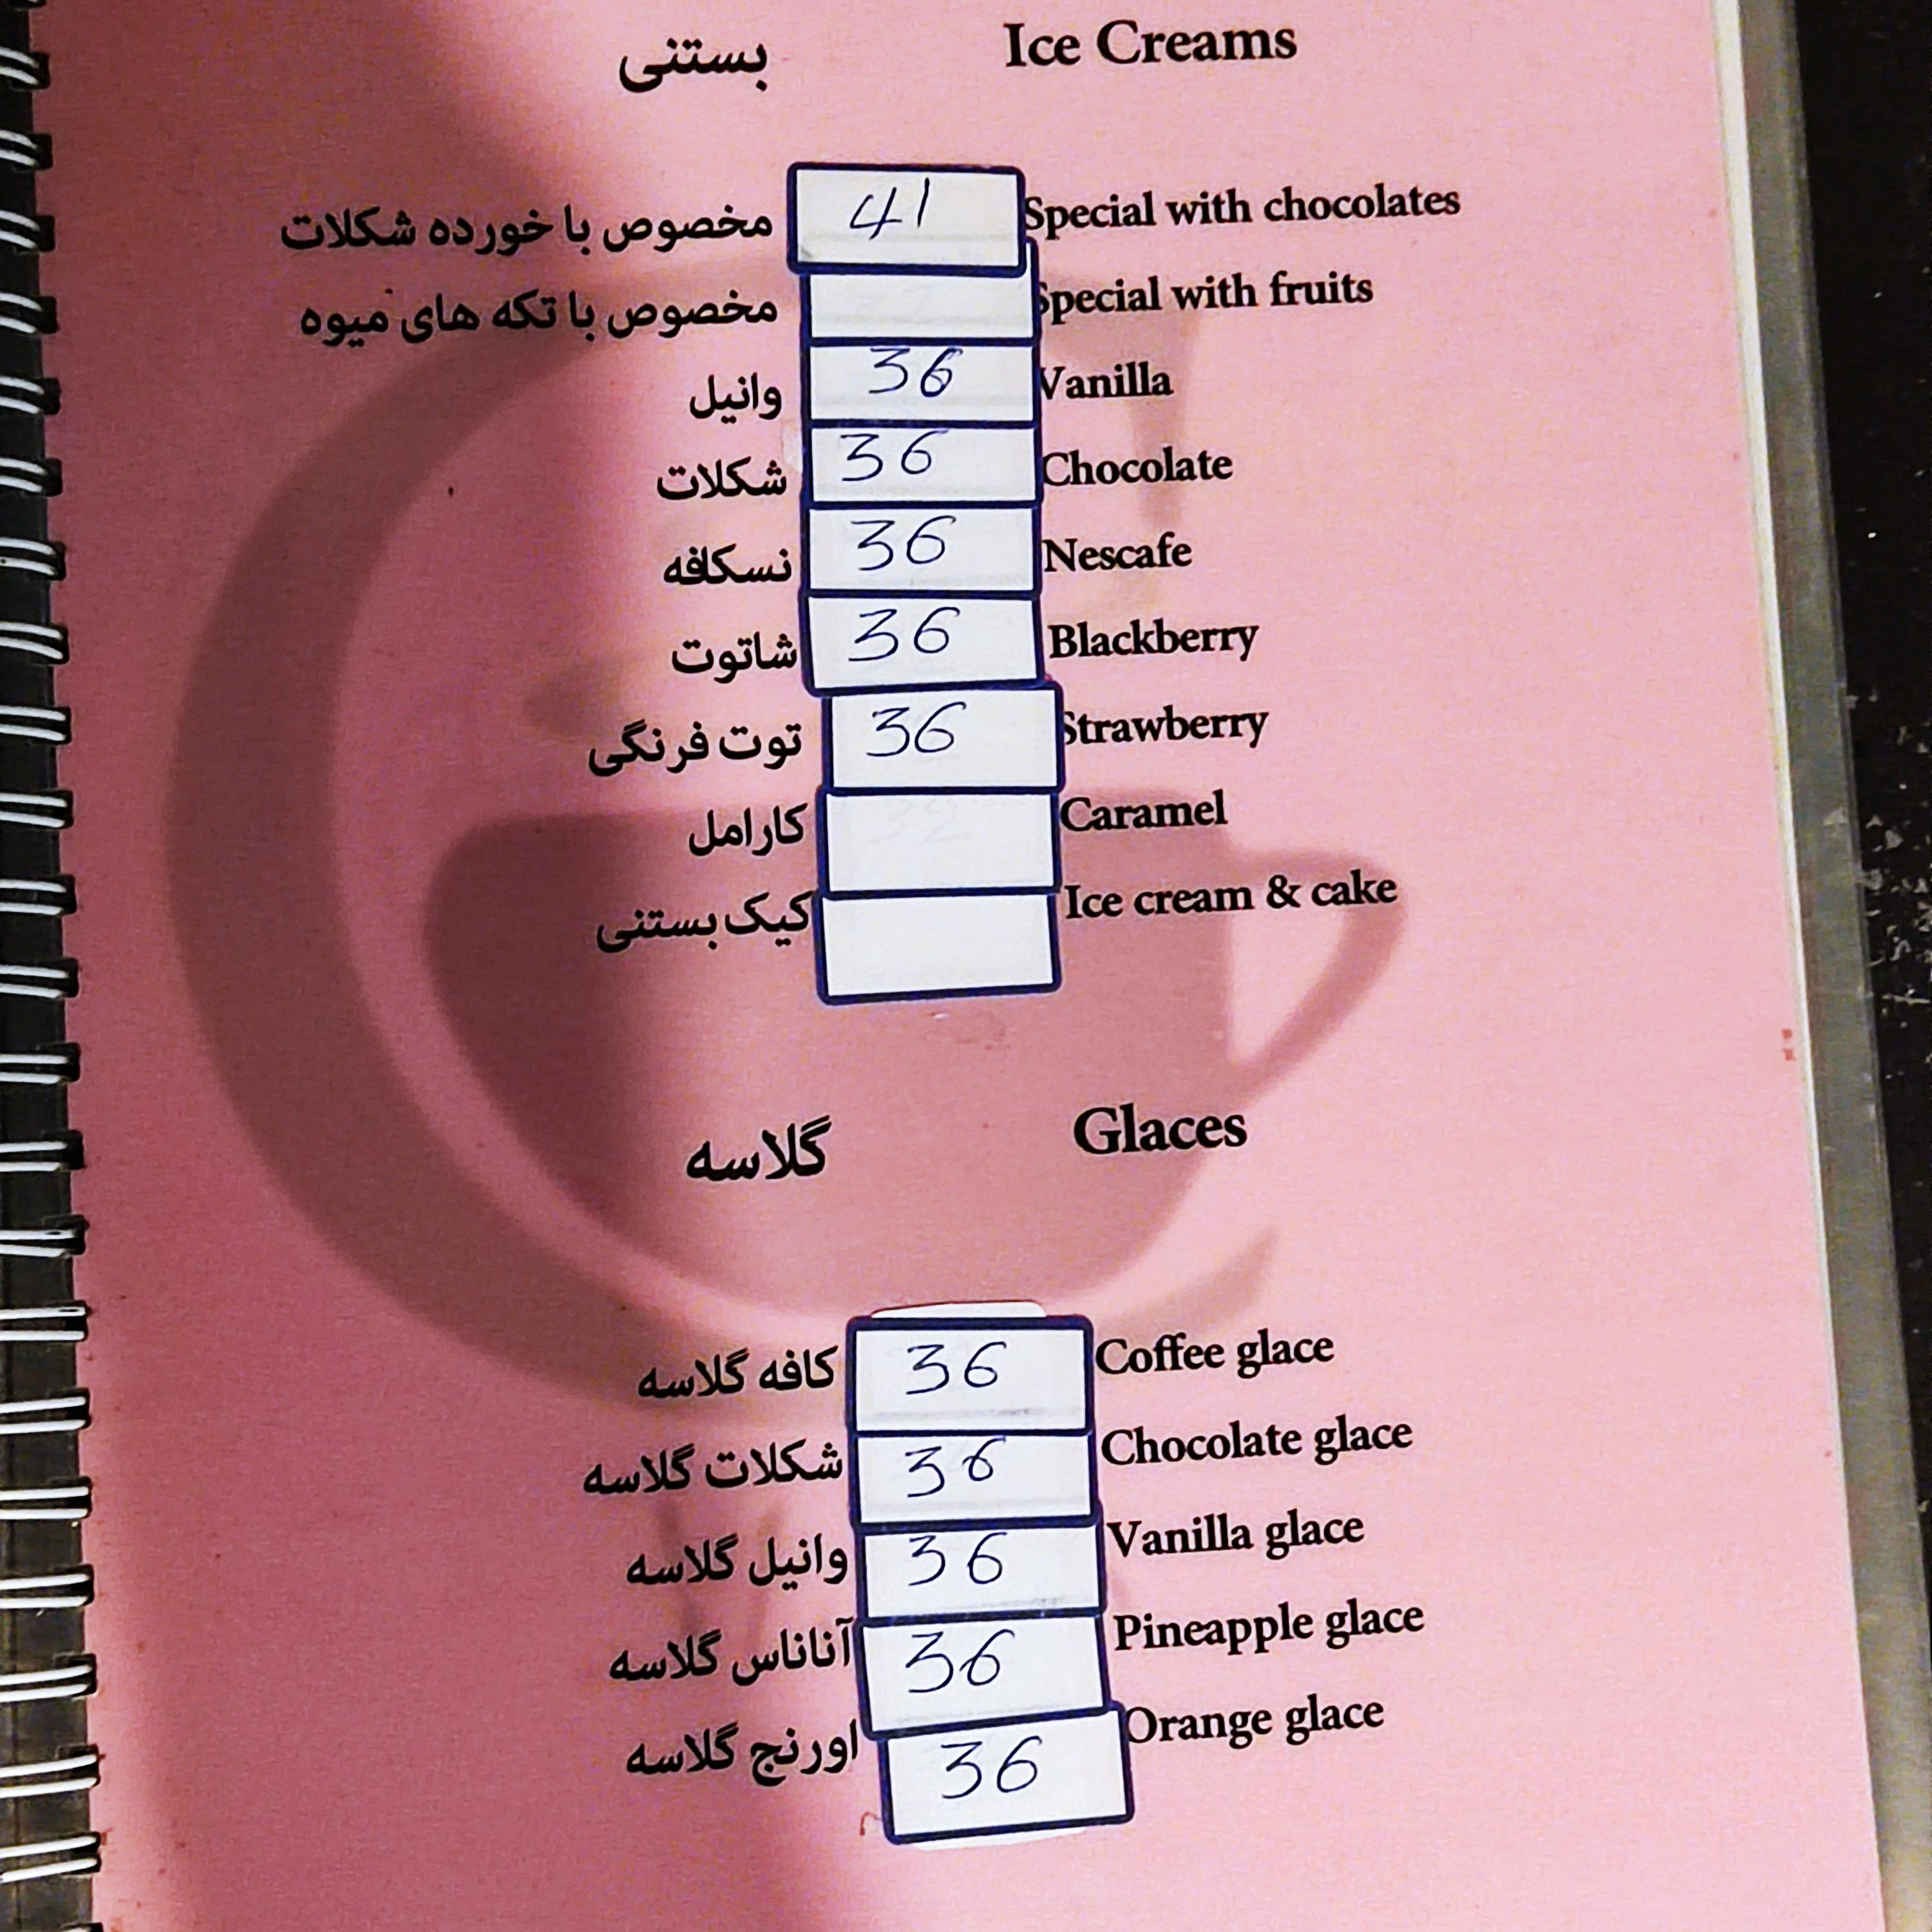 بستنی Ice Creams
مخصوص با خورده شکلات 41 Special with chocolates
مخصوص با تکه های میوه Special with fruits
وانیل 36 Vanilla
شکلات 36 Chocolate
نسکافه 36 Nescafe
شاتوت 36 Blackberry
توت فرنگی 36 Strawberry
کارامل Caramel
کیک بستنی Ice cream & cake
گلاسه Glaces
کافه گلاسه 36 Coffee glace
شکلات گلاسه 36 Chocolate glace
وانیل گلاسه 36 Vanilla glace
آناناس گلاسه 36 Pineapple glace
اورنج گلاسه 36 Orange glace